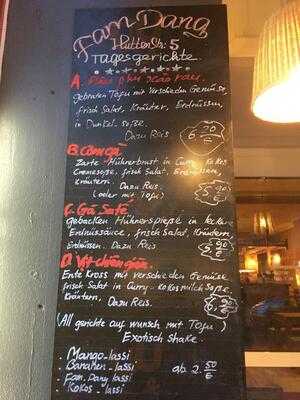 Fam Dang
Hüttenstr. 5
Tagesgerichte
A. Đậu phụ xào rau.
gebraten Tofu mit verschieden Gemüse,
frisch Salat, Kräuter, Erdnüssen,
in Dunkel-soße.
Dazu Reis
6.20 €
B. Cơm gà
Zarte Hühnerbrust in Curry-Kokos
Cremesoße, frisch Salat, Erdnüssen,
kräutern. Dazu Reis.
(oder mit Tofu)
5.90 €
C. Gà Saté
gebacken Hühnerspieße in lecker
Erdnüssauce, frisch Salat, Kräutern,
Erdnüssen. Dazu Reis
5.90 €
D. Vịt chiên giòn.
Ente Kross mit verschieden Gemüse
frisch Salat in Curry-Kokosmilchsoße,
Kräutern, Dazu Reis.
6.90 €
(All gerichte auf wunsch mit Tofu)
Exotisch Shake.
. Mango-lassi
. Bananen-lassi
. Fam. Dang lassi
. Kokos-lassi
ab 2.50 €